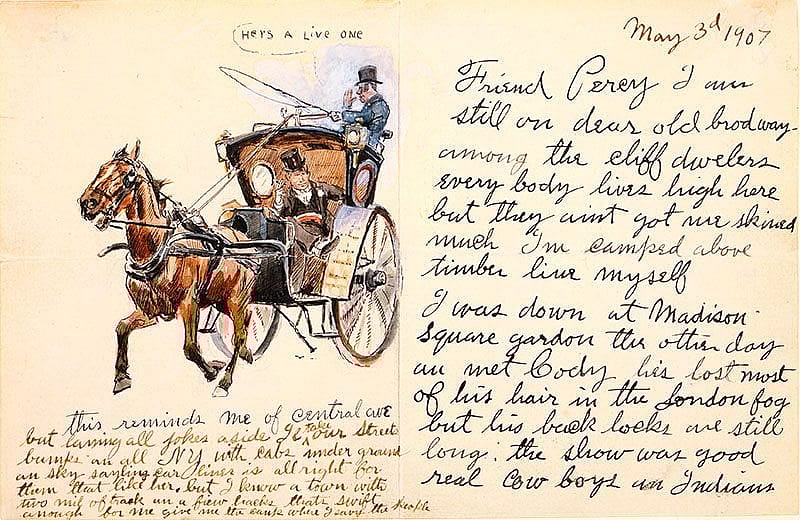 HERS A LIVE ONE
this reminds me of central ave
but laning all jokes aside Id take our streets
bumps an all NY with cabs under ground
an sky car lines is all right for
them that like her, but I know a town with
two mil of track an a few hacks thats swift
anough for me give me the camp where I savy the people
May 3d 1907
Friend Percy I am
still on dear old brodway
among the cliff dwelers
every body lives high here
but they aint got me skined
much I'm camped above
timber line myself
I was down at Madison
Square gardon the other day
an met Cody hes lost most
of his hair in the London fog
but his back locks are still
long. the show was good
real cow boys an Indians